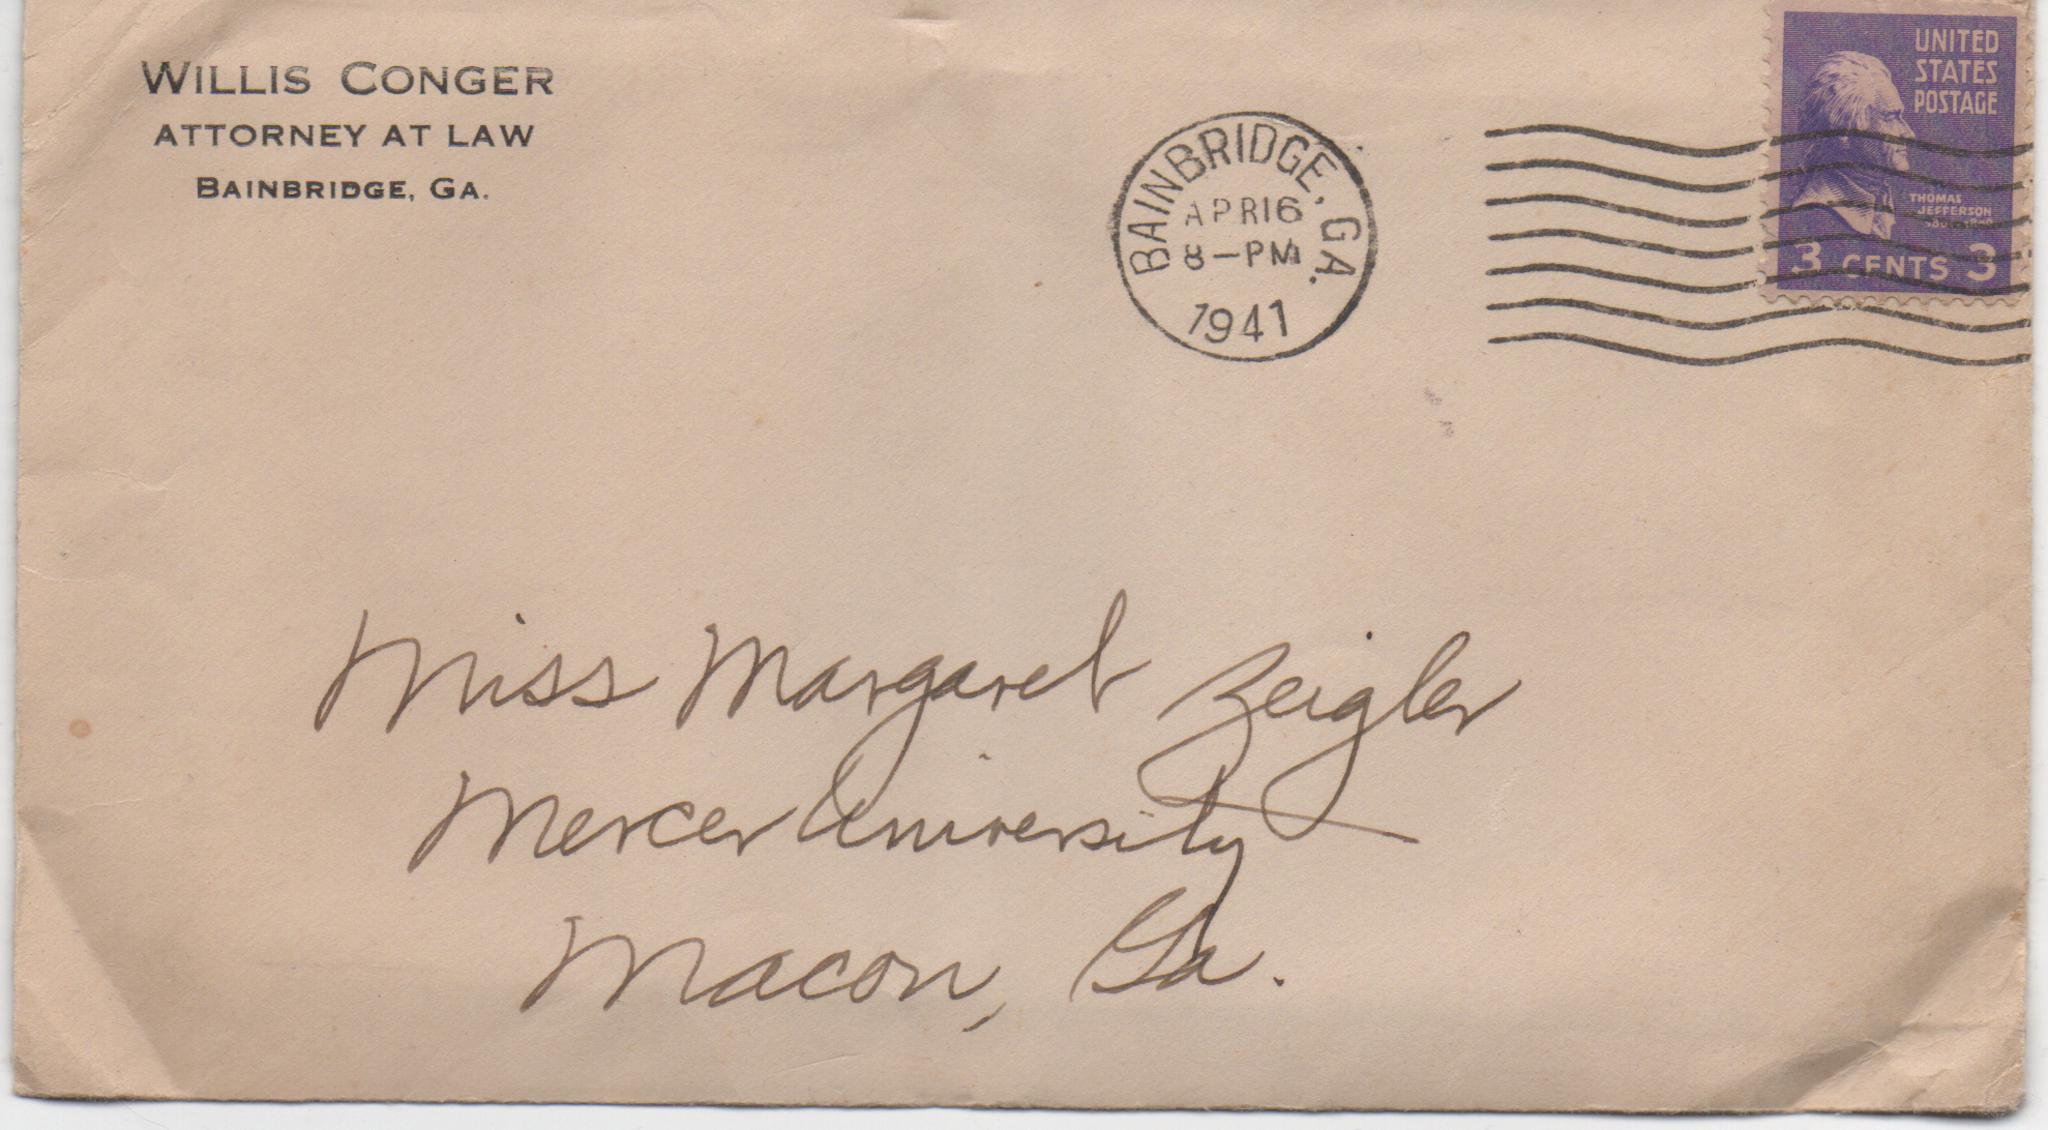 WILLIS CONGER
ATTORNEY AT LAW
BAINBRIDGE, GA.
BAINBRIDGE, GA.
APR 16
8-PM
1941
UNITED
STATES
POSTAGE
THOMAS
JEFFERSON
3 CENTS 3
Miss Margaret Zeigler
Mercer University
Macon, Ga.